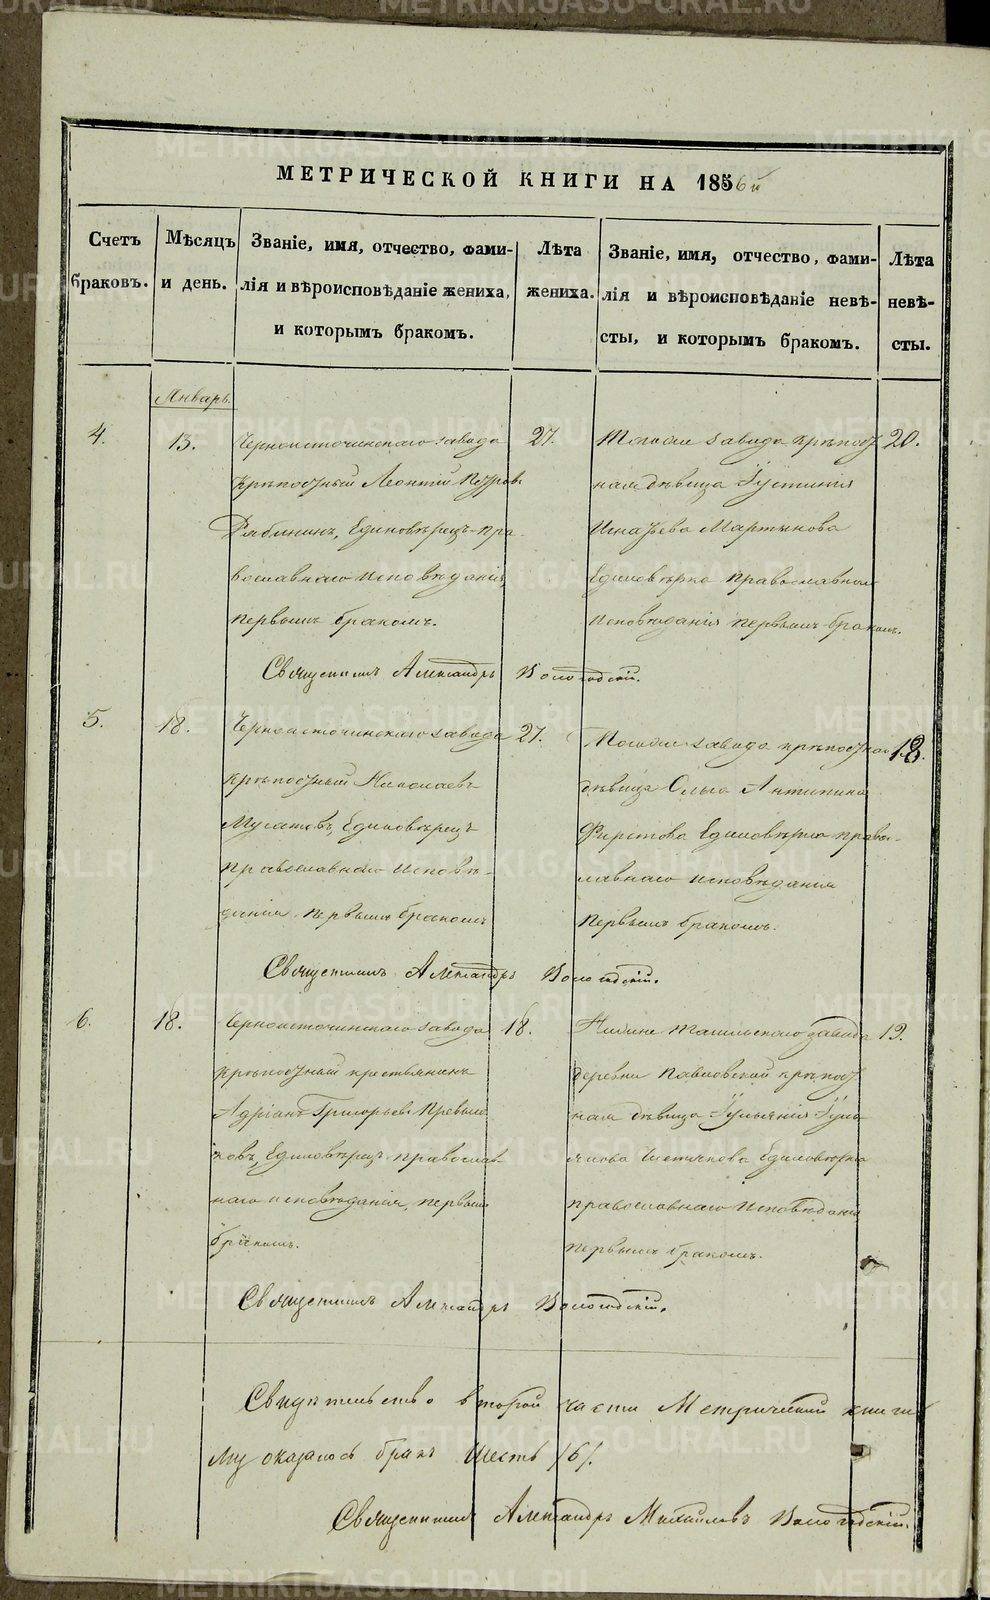 МЕТРИЧЕСКОЙ КНИГИ НА 1856й
Счетъ браковъ.
Мѣсяцъ и день.
Званіе, имя, отчество, фами-
лія и вѣроисповѣданіе жениха,
и которымъ бракомъ.
Лѣта жениха.
Званіе, имя, отчество, фами-
лія и вѣроисповѣданіе невѣ-
сты, и которымъ бракомъ.
Лѣта невѣ-
сты.
Январь.
4.
13.
Черноисточинскаго завода
крѣпостный Леонтій Петровъ
Рябининъ, Единовѣрецъ пра-
вославнаго исповѣданія
первымъ бракомъ.
27.
завода крѣпост
ная дѣвица Іустинія
Игнатьева Мартынова
Единовѣрка православнаго
исповѣданія первымъ бракомъ.
20.
Священникъ Александръ Вологодскій.
5.
18.
Черноисточинскаго завода
крѣпостный Николаевъ
Мусатовъ, Единовѣрецъ
православнаго исповѣ-
данія первымъ бракомъ
27.
завода крѣпостная
дѣвица Ольга Антипина
Фирстова Единовѣрка право-
славнаго исповѣданія
первымъ бракомъ.
18.
Священникъ Александръ Вологодскій.
6.
18.
Черноисточинскаго завода
крѣпостный крестьянинъ
Адріанъ Григорьевъ
Единовѣрецъ православ-
наго исповѣданія, первымъ
бракомъ.
18.
Нижне Тагильскаго завода
деревни Павловской крѣпост
ная дѣвица Іульянія
Единовѣрка
православнаго исповѣданія
первымъ бракомъ.
19.
Священникъ Александръ Вологодскій.
второй части Метрической книги
му оказалось бракъ шесть /6/.
Священникъ Александръ Михайловъ Вологодскій.
METRIKI.GASO-URAL.RU